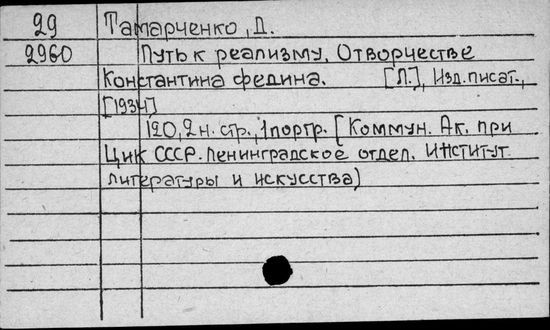 29 Тамарченко, Д.
2960 Путь к реализму. О творчестве
Константина Федина. [Л.], Изд. писат.,
[1934]
120, 2 н. стр., 1 портр. [Коммун. Ак. при
Цик СССР. Ленинградское отдел. Институт
литературы и искусства)